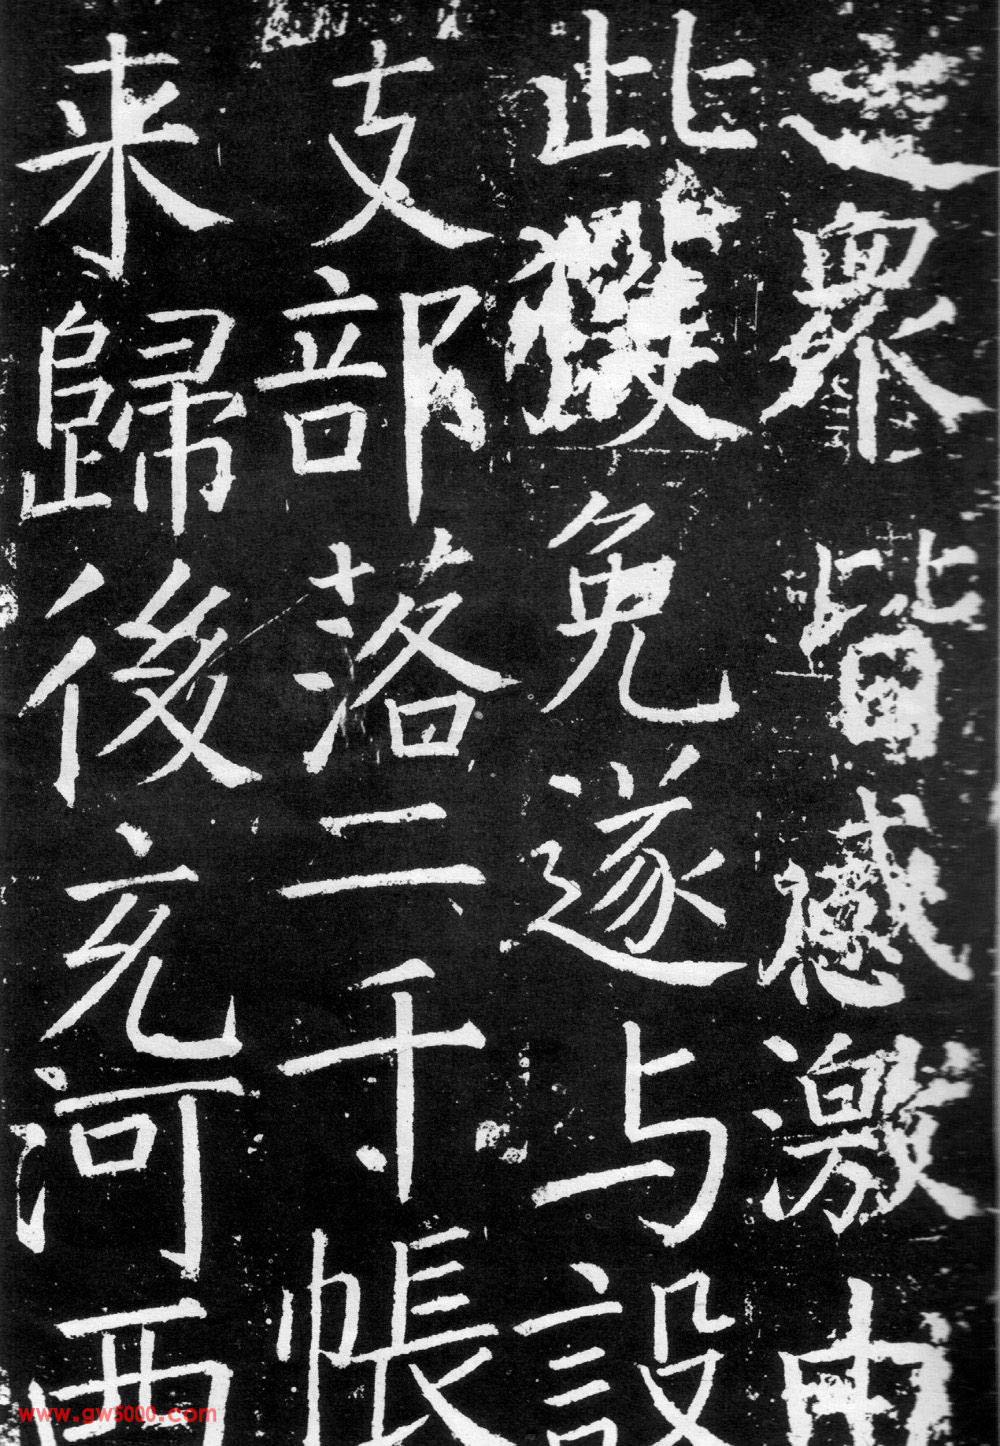 之眾皆感激由
此獲免遂与設
支部落二千帳
来歸後充河西
www.gw5000.com